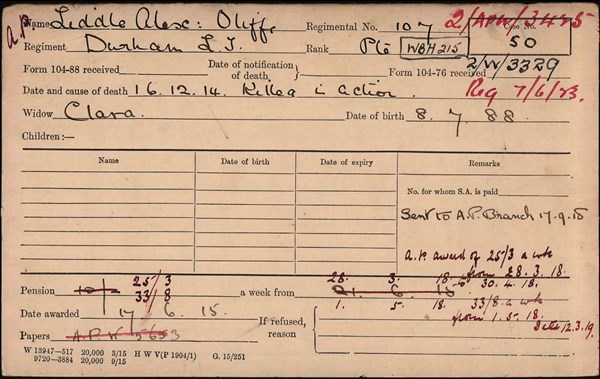 A.P. Name Liddle Alex: Oliff. Regimental No. 107 2/APW/3425 Case No.
Regiment Durham L.I. Rank Pte WBH215 50
Form 104-88 received Date of notification of death, Form 104-76 received 2/W/3329
Date and cause of death 16.12.14. Killed in action. Reg 7/6/23.
Widow Clara. Date of birth 8. 7. 88.
Children:—
Name Date of birth Date of expiry Remarks
No. for whom S.A. is paid
Sent to A.P. Branch 17.9.15
A.P. award of 25/3 a wk
from 28.3.18.
25/3 28. 3. 18. to 30.4.18.
Pension 10/- 33/8 a week from 21. 6. 15.
1. 5. 18. 33/8. a wk
Date awarded 17 6. 15. from 1.5.18.
If refused, reason
Date 12.3.19.
Papers A.P.W 5653
W 13947—517 20,000 3/15 H W V(P 1904/1) G. 15/251
9720—3884 20,000 9/15